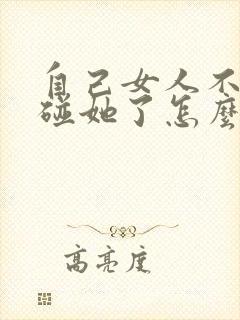 自己女人不
碰她了怎麼
高亮度